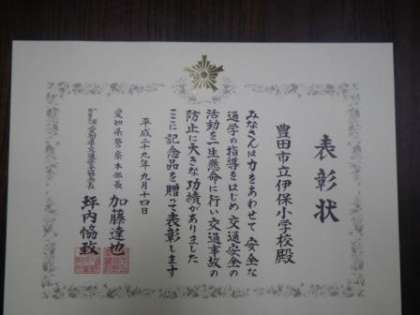 表彰状
豊田市立伊保小学校殿
みなさんは力をあわせて 安全な
通学の指導をはじめ 交通安全の
活動を一生懸命に行い交通事故の
防止に大きな功績がありました
ここに記念品を贈って表彰します
平成二十九年九月十四日
愛知県警察本部長 加藤達也
坪内恊致